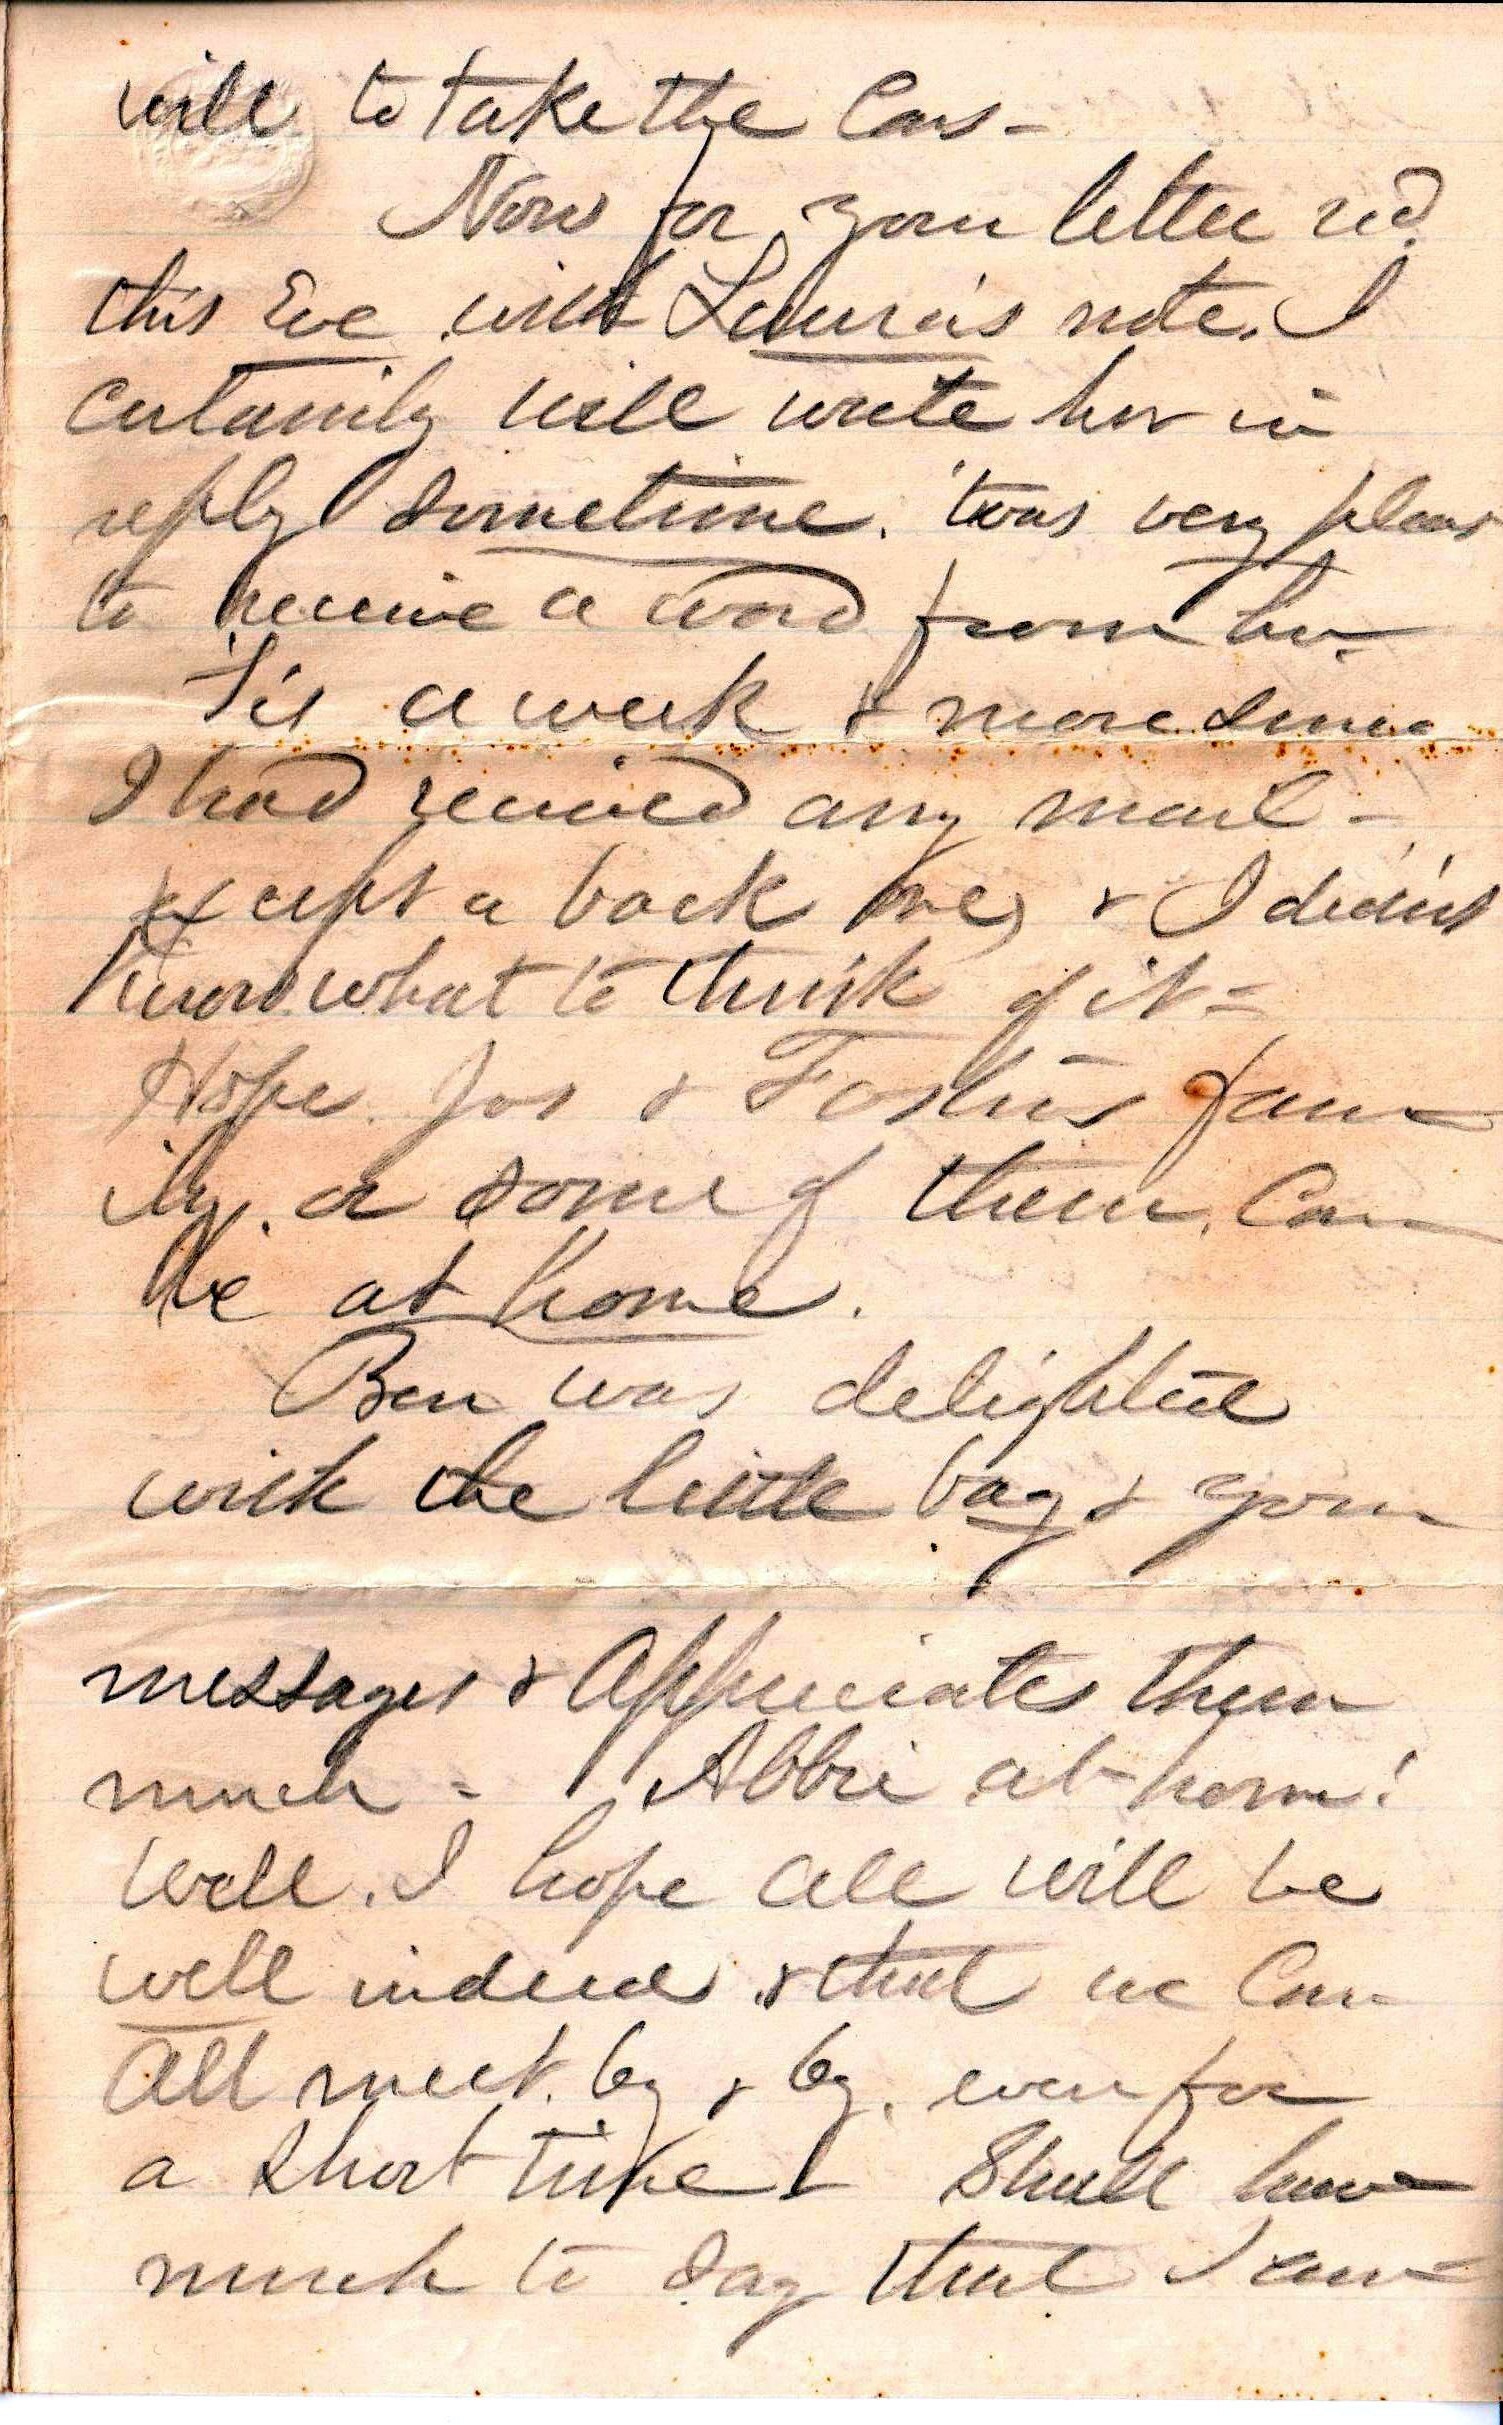 will to take the Cars -
Now for your letter rec'd
this Eve with Laura's note. I
certainly will write her in
reply sometime. 'twas very pleas
to receive a word from her.
'Tis a week & more since
I had received any mail -
except a back one, & I didn't
know what to think of it -
Hope Jos & Foster's fam-
ily or some of them, can
be at home.
Ben was delighted
with the little bag & your
messages & appreciates them
much - Abbie at home!
Well. I hope all will be
well indeed & that we can
all meet by & by, even for
a short time - Shall have
much to say that I can-